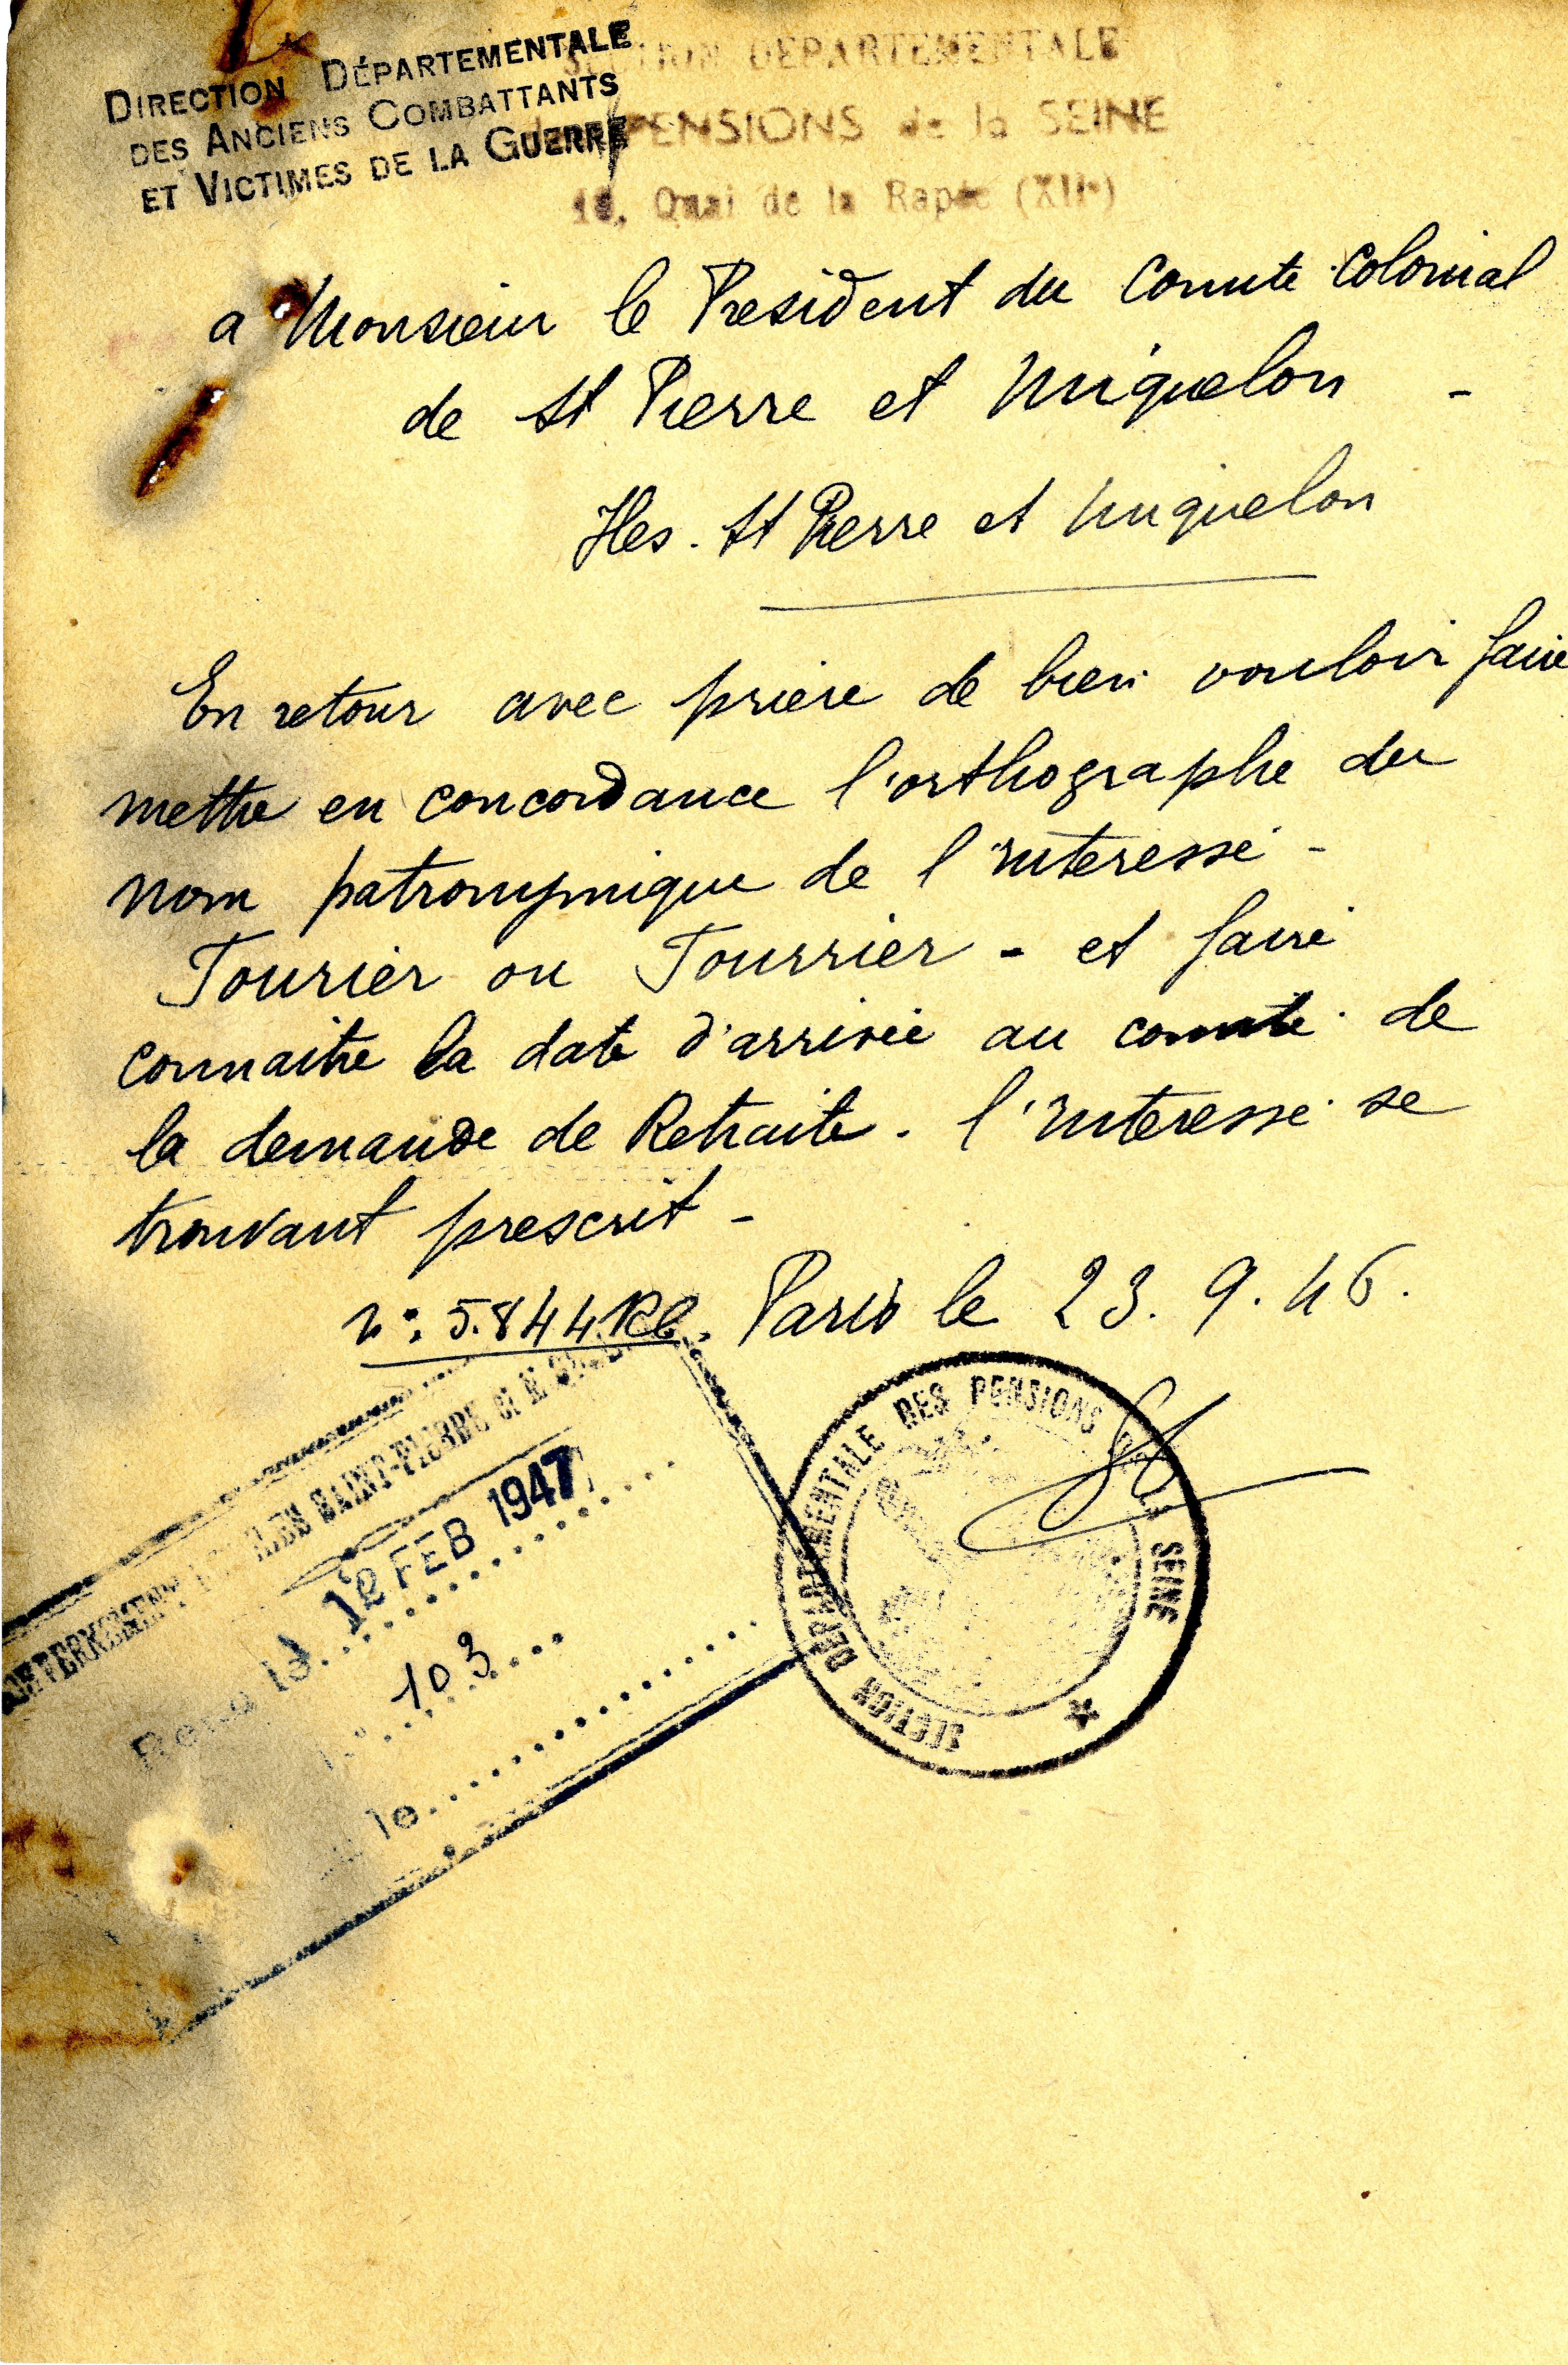 DIRECTION DÉPARTEMENTALE
DES ANCIENS COMBATTANTS
ET VICTIMES DE LA GUERRE
SECTION DEPARTEMENTALE
PENSIONS de la SEINE
Quai de la Rapée (XIIe)
a Monsieur le President du Comite Colonial
de St Pierre et Miquelon -
Iles. St Pierre et Miquelon
En retour avec priere de bien vouloir faire
mettre en concordance l'orthographe du
nom patronymique de l'interessé -
Tourier ou Tourrier - et faire
connaitre la date d'arrivée au comité de
la demande de Retraite. l'interessé se
trouvant prescrit -
n°: 5.844 Rl. Paris le 23.9.46.
GOUVERNEMENT ILES SAINT-PIERRE et M
Reçu le 12 FEB 1947
N° 103
le
SECTION DEPARTEMENTALE DES PENSIONS SEINE